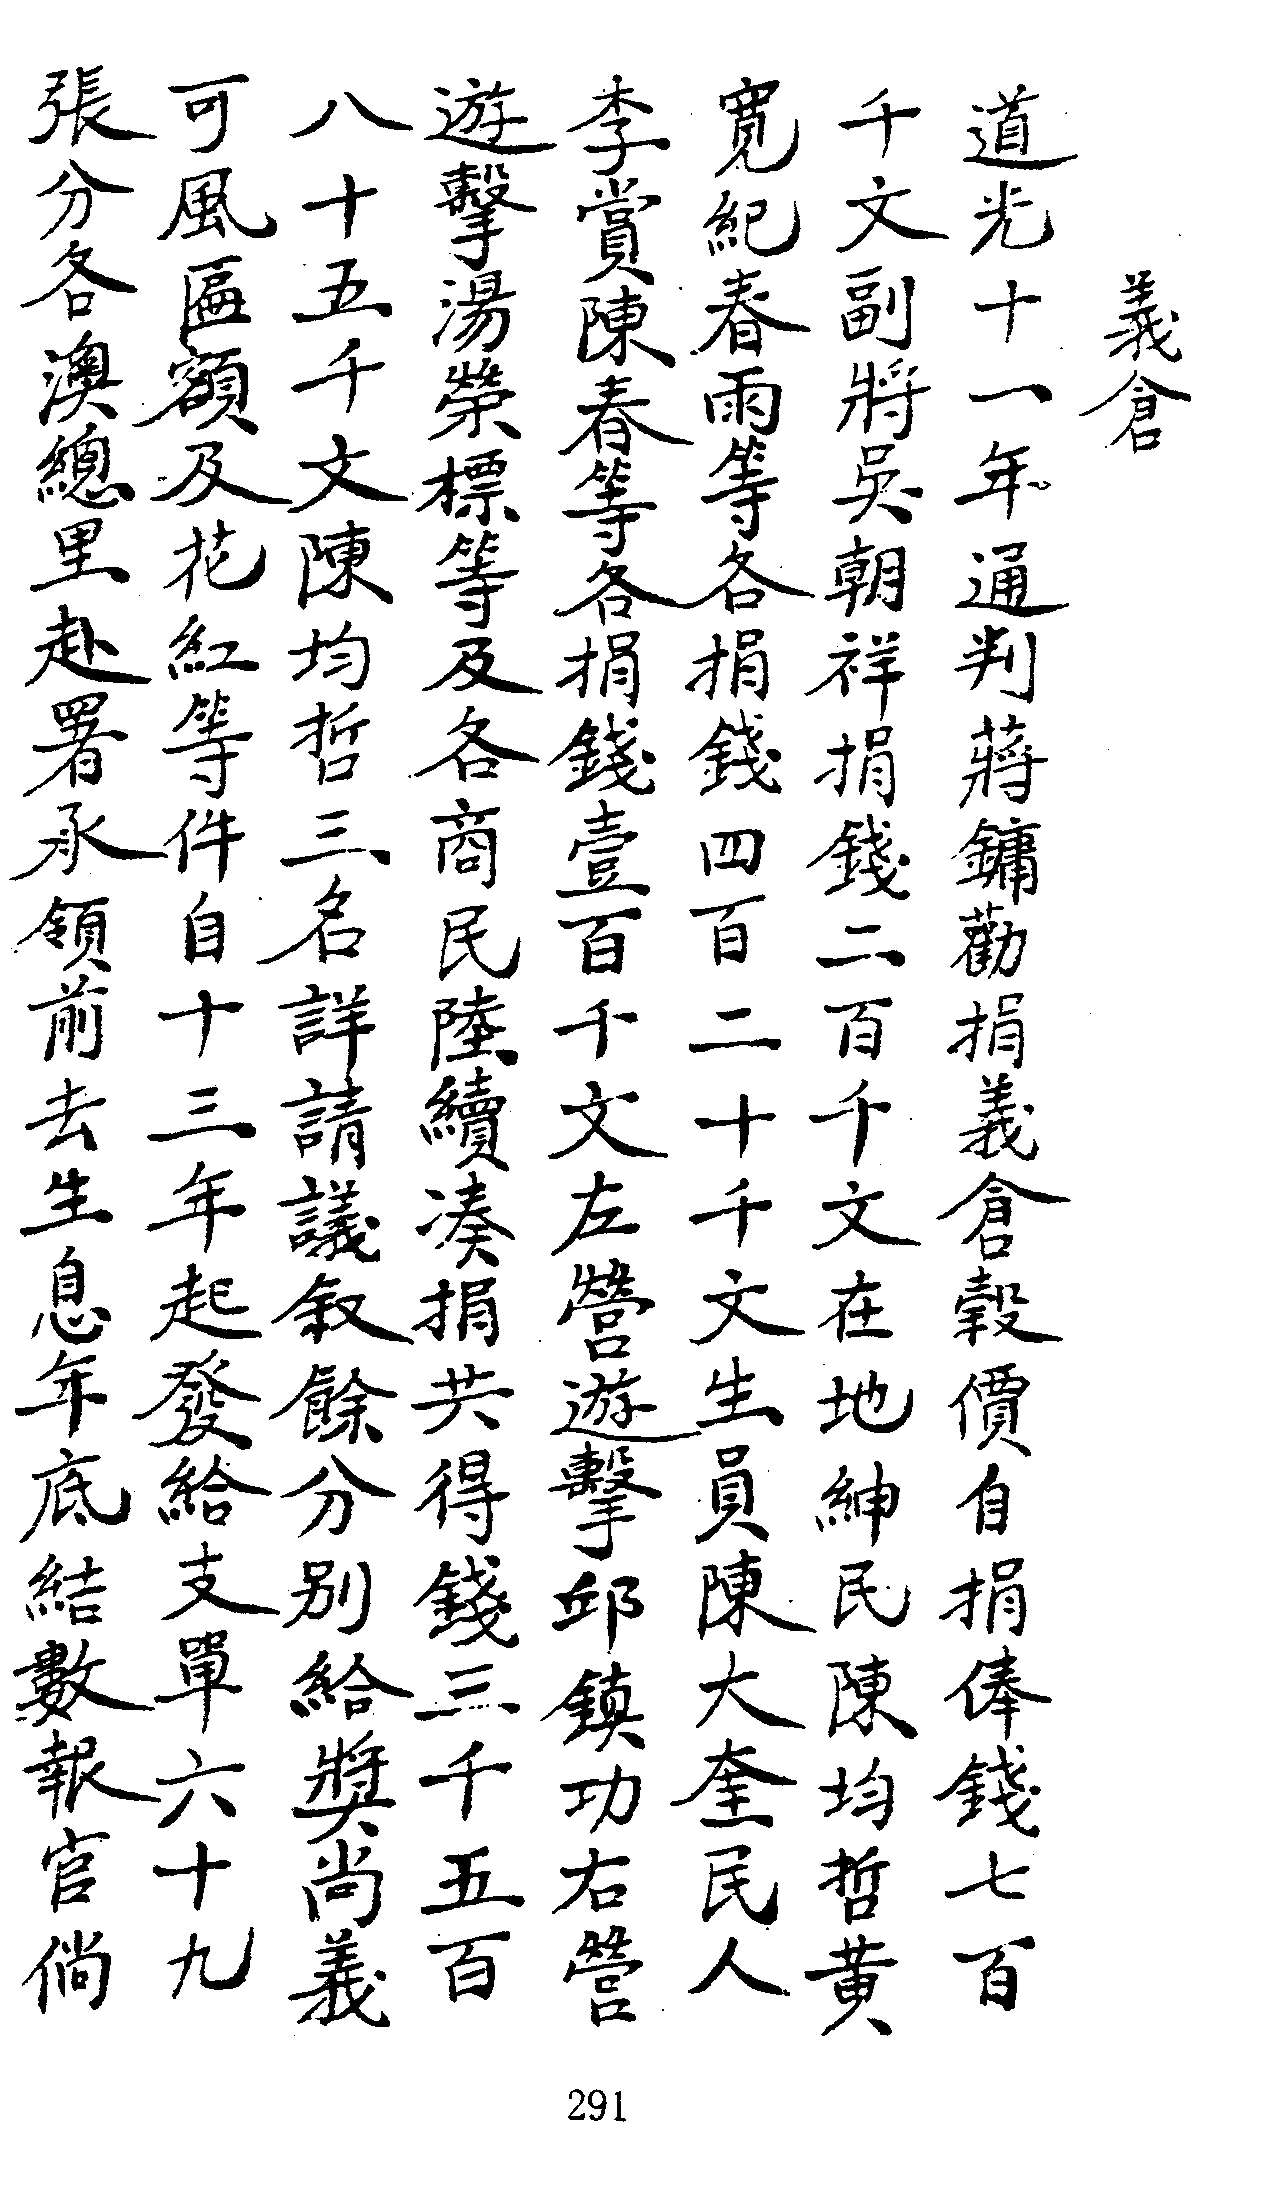 義倉
道光十一年通判蔣鏞勸捐義倉穀價自捐俸錢七百
千文副將吳朝祥捐錢二百千文在地紳民陳均哲黃
寬紀春雨等各捐錢四百二十千文生員陳大奎民人
李賞陳春等各捐錢壹百千文左營遊擊邱鎮功右營
遊擊湯榮標等及各商民陸續湊捐共得錢三千五百
八十五千文陳均哲三名詳請議敘餘分別給獎尚義
可風匾額及花紅等件自十三年起發給支單六十九
張分各澳總里赴署承領前去生息年底結數報官倘
291